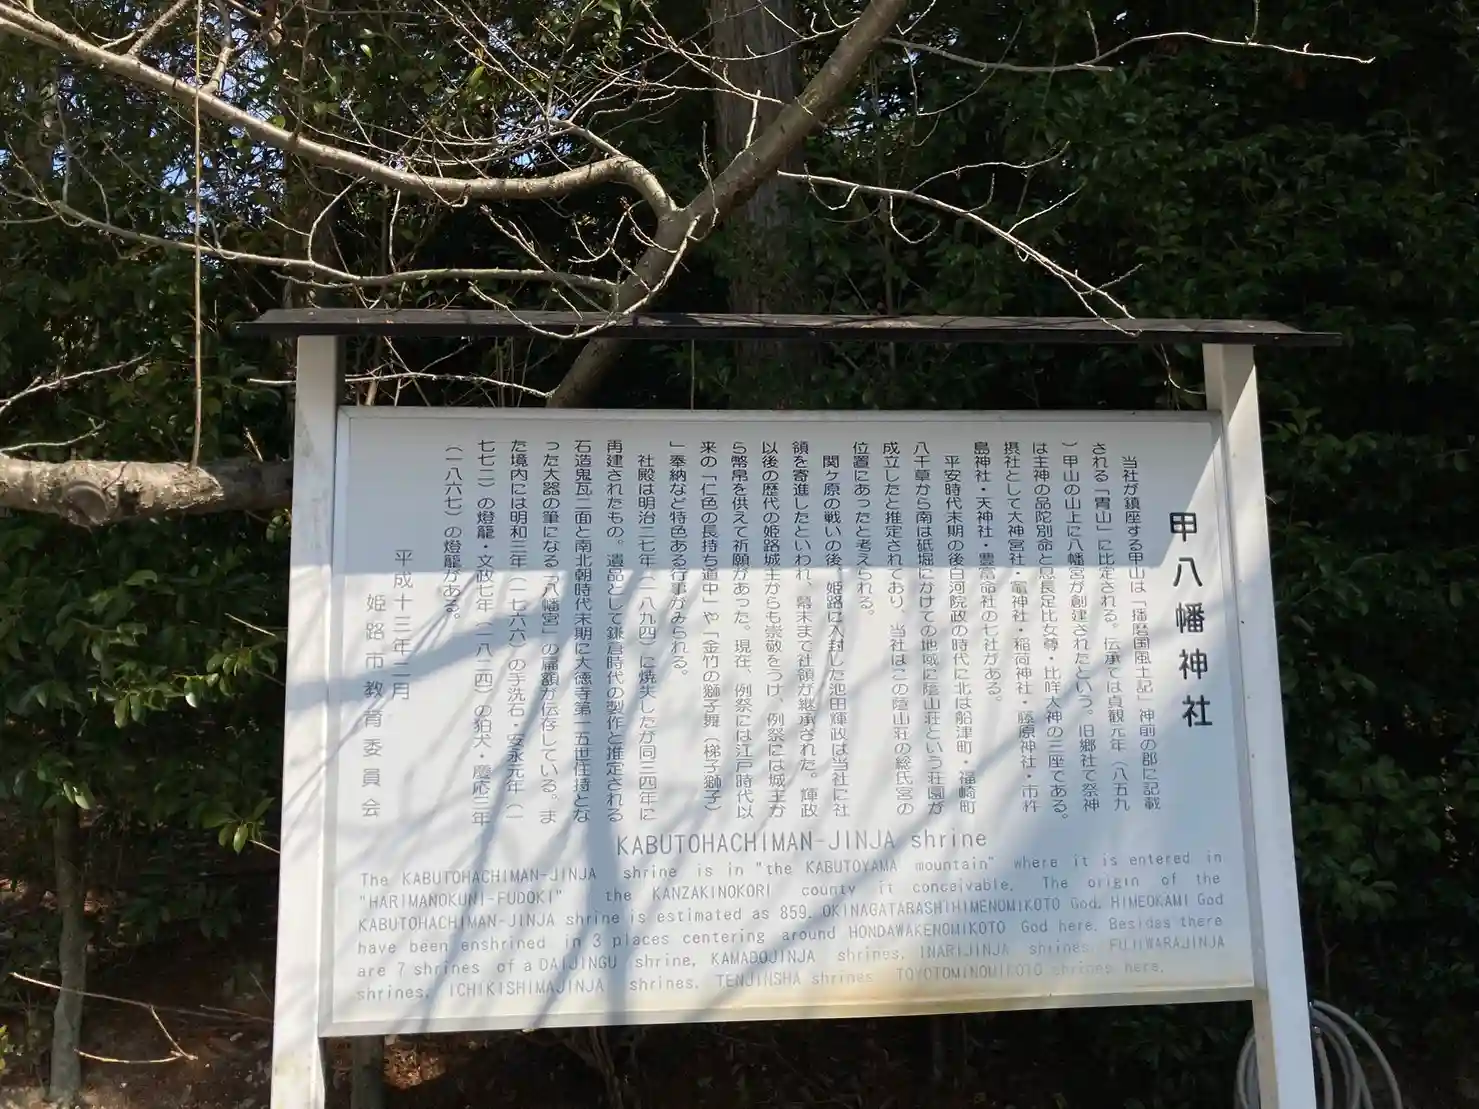 甲八幡神社
当社が鎮座する甲山は「播磨国風土記」神前の郡に記載
される「冑山」に比定される。伝承では貞観元年（八五九
）甲山の山上に八幡宮が創建されたという。旧郷社で祭神
は主神の品陀別命と息長足比女尊・比咩大神の三座である。
摂社として大神宮社・竈神社・稲荷神社・藤原神社・市杵
島神社・天神社・豊富命社の七社がある。
平安時代末期の後白河院政の時代に北は船津町・福崎町
八千草から南は砥堀にかけての地域に蔭山荘という荘園が
成立したと推定されており、当社はこの蔭山荘の総氏宮の
位置にあったと考えられる。
関ヶ原の戦いの後、姫路に入封した池田輝政は当社に社
領を寄進したといわれ、幕末まで社領が継承された。輝政
以後の歴代の姫路城主からも崇敬をうけ、例祭には城主か
ら幣帛を供えて祈願があった。現在、例祭には江戸時代以
来の「仁色の長持ち道中」や「金竹の獅子舞（梯子獅子）
」奉納など特色ある行事がみられる。
社殿は明治二七年（一八九四）に焼失したが同三四年に
再建されたもの。遺品として鎌倉時代の製作と推定される
石造鬼瓦二面と南北朝時代末期に大徳寺第一五世住持とな
った大器の筆になる「八幡宮」の扁額が伝存している。ま
た境内には明和三年（一七六六）の手洗石・安永元年（一
七七二）の燈籠・文政七年（一八二四）の狛犬・慶応三年
（一八六七）の燈籠がある。
平成十三年二月
姫路市教育委員会
KABUTOHACHIMAN-JINJA shrine
The KABUTOHACHIMAN-JINJA shrine is in "the KABUTOYAMA mountain" where it is entered in
"HARIMANOKUNI-FUDOKI" the KANZAKINOKORI county it conceivable. The origin of the
KABUTOHACHIMAN-JINJA shrine is estimated as 859. OKINAGATARASHIHIMENOMIKOTO God. HIMEOKAMI God
have been enshrined in 3 places centering around HONDAWAKENOMIKOTO God here. Besides there
are 7 shrines of a DAIJINGU shrine, KAMADOJINJA shrines, INARIJINJA shrines, FUJIWARAJINJA
shrines, ICHIKISHIMAJINJA shrines, TENJINSHA shrines, TOYOTOMINOMIKOTO shrines here.